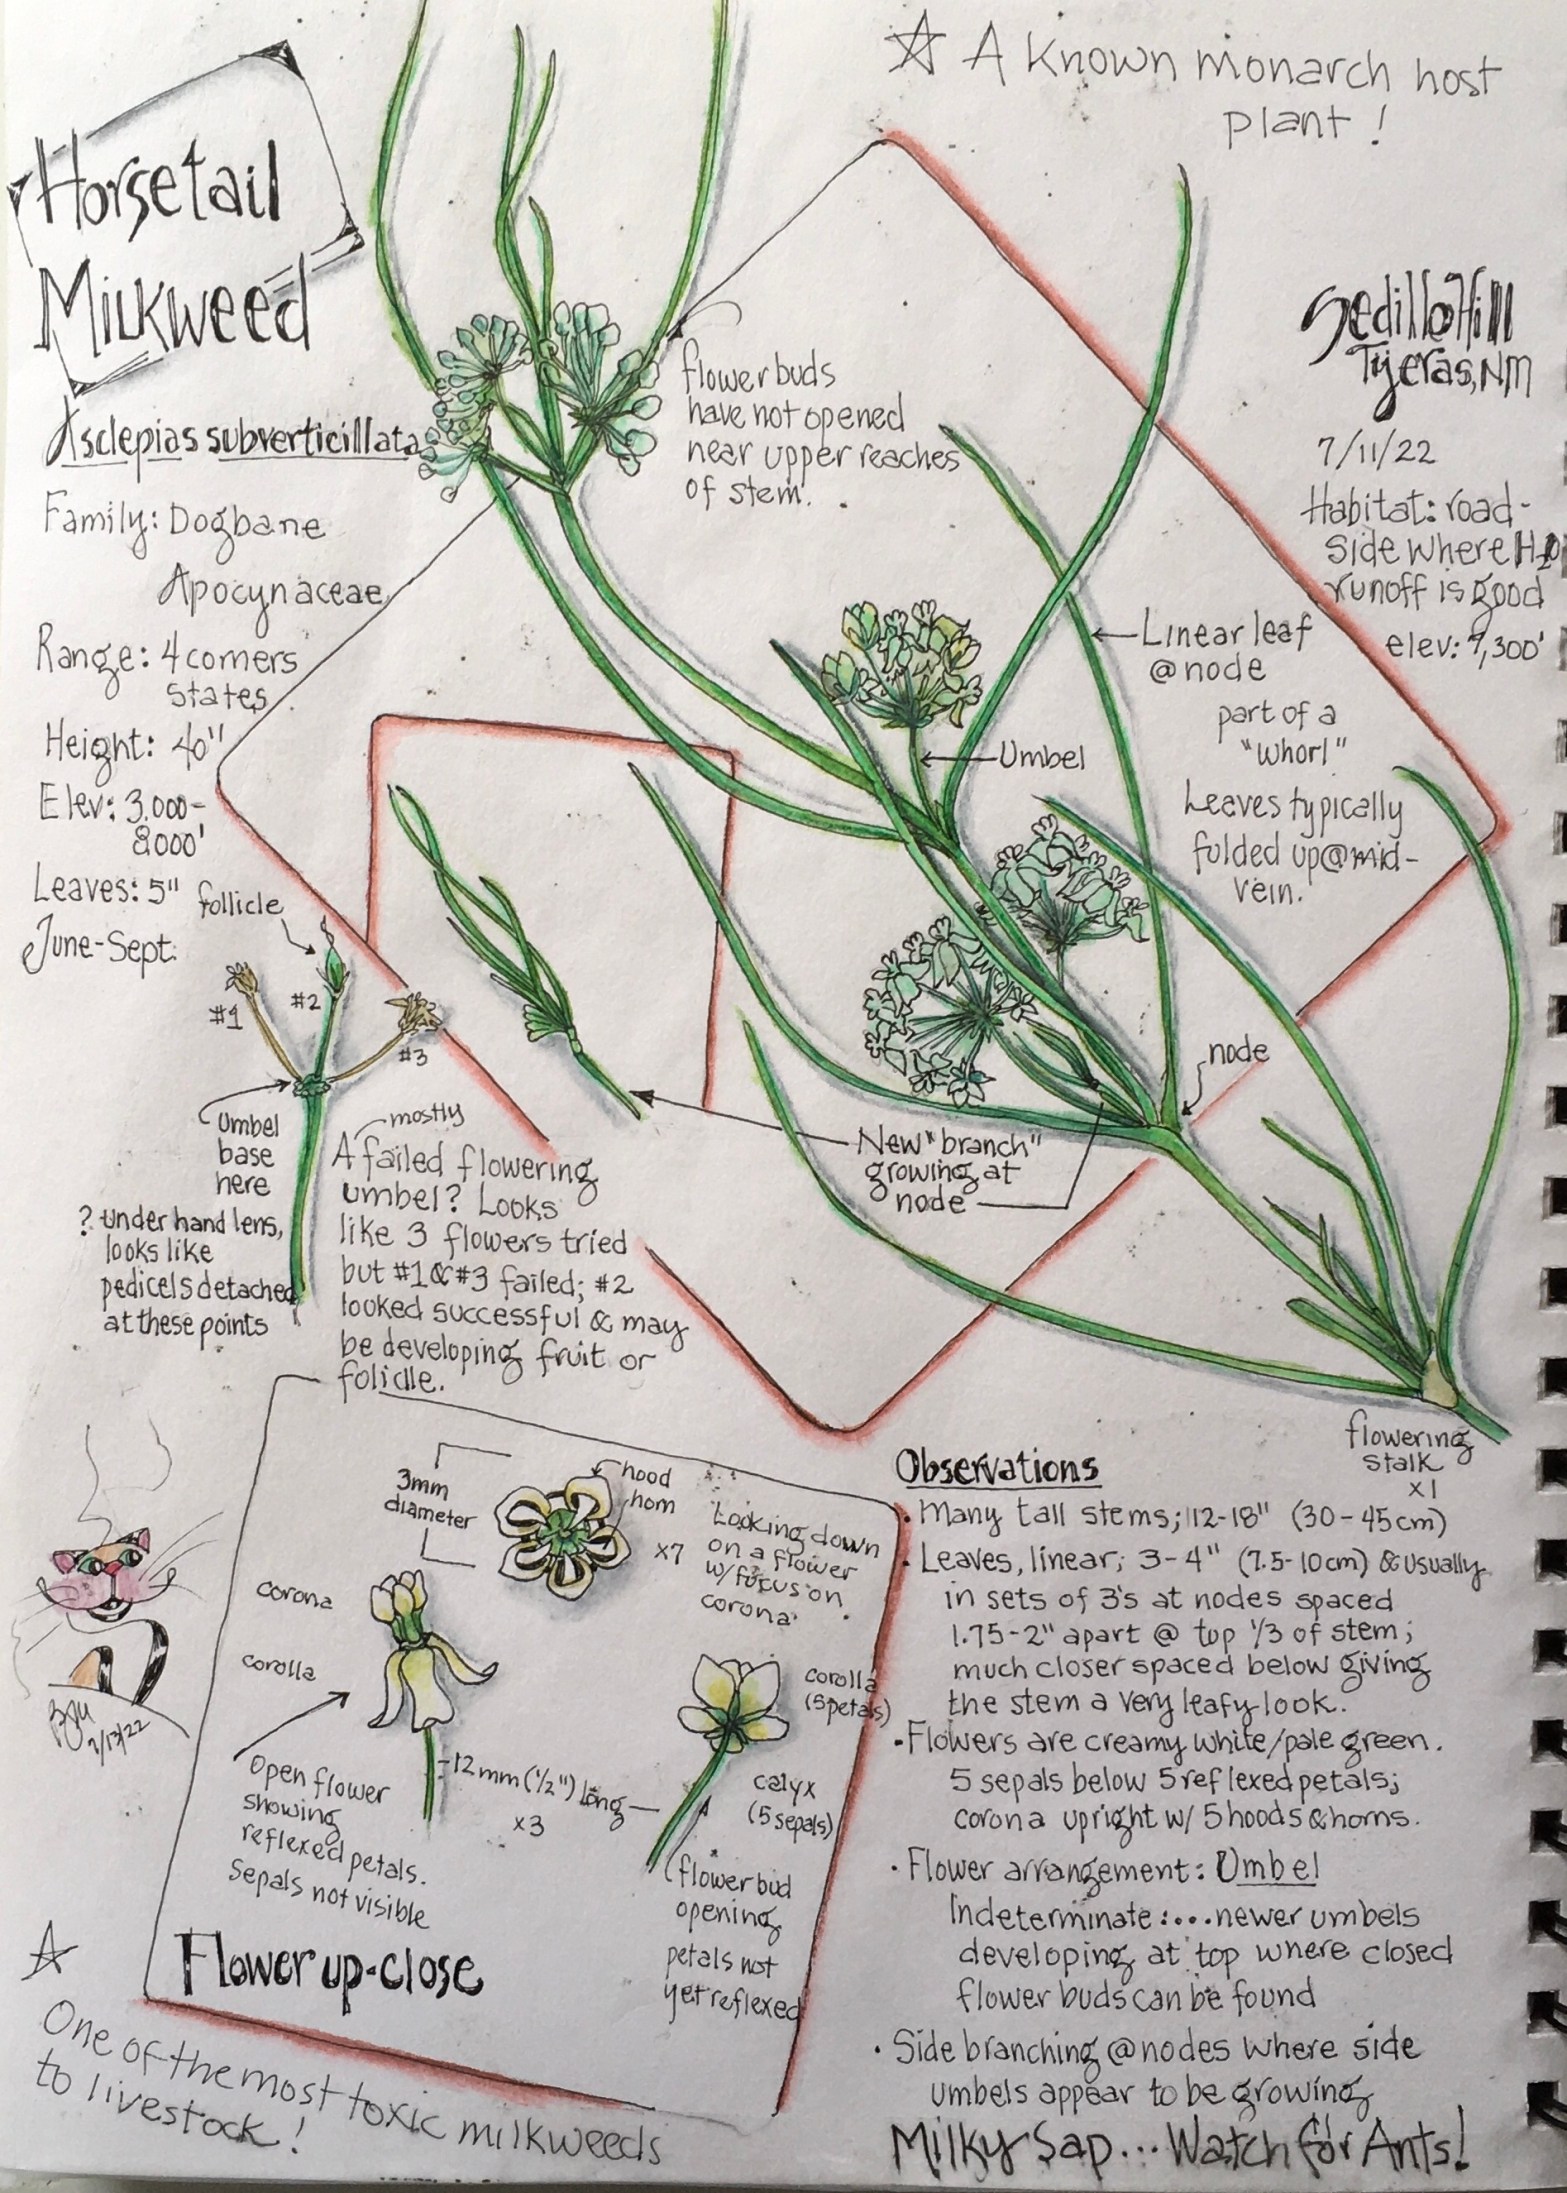 ☆ A known monarch host
plant!
Horsetail
Milkweed
Asclepias subverticillata
Family: Dogbane
Apocynaceae
Range: 4 corners
states
Height: 40"
Elev: 3,000-
8000'
Leaves: 5"
June-Sept.
flower buds
have not opened
near upper reaches
of stem.
Sedillo Hill
Tijeras, NM
7/11/22
Habitat: road-
side where H2O
runoff is good
elev: 7,300'
Linear leaf
@ node
part of a
"whorl"
Leaves typically
folded up @ mid-
vein.
Umbel
node
New "branch"
growing at
node
follicle
#1
#2
#3
Umbel
base
here
? under hand lens,
looks like
pedicels detached
at these points
mostly
A failed flowering
umbel? Looks
like 3 flowers tried
but #1 & #3 failed; #2
looked successful & may
be developing fruit or
folicle.
flowering
stalk
x1
3mm
diameter
hood
horn
x7
Looking down
on a flower
w/ focus on
corona.
corona
corolla
Open flower
showing
reflexed petals.
Sepals not visible
12mm (1/2") long
x3
corolla
(5 petals)
calyx
(5 sepals)
flower bud
opening
petals not
yet reflexed
Flower up-close
☆
One of the most toxic milkweeds
to livestock!
Observations
• Many tall stems; 12-18" (30-45cm)
• Leaves, linear; 3-4" (7.5-10cm) & usually
in sets of 3's at nodes spaced
1.75-2" apart @ top 1/3 of stem;
much closer spaced below giving
the stem a very leafy look.
• Flowers are creamy white/pale green.
5 sepals below 5 reflexed petals;
corona upright w/ 5 hoods & horns.
• Flower arrangement: Umbel
Indeterminate:...newer umbels
developing at top where closed
flower buds can be found
• Side branching @ nodes where side
umbels appear to be growing
Milky Sap... Watch for Ants!